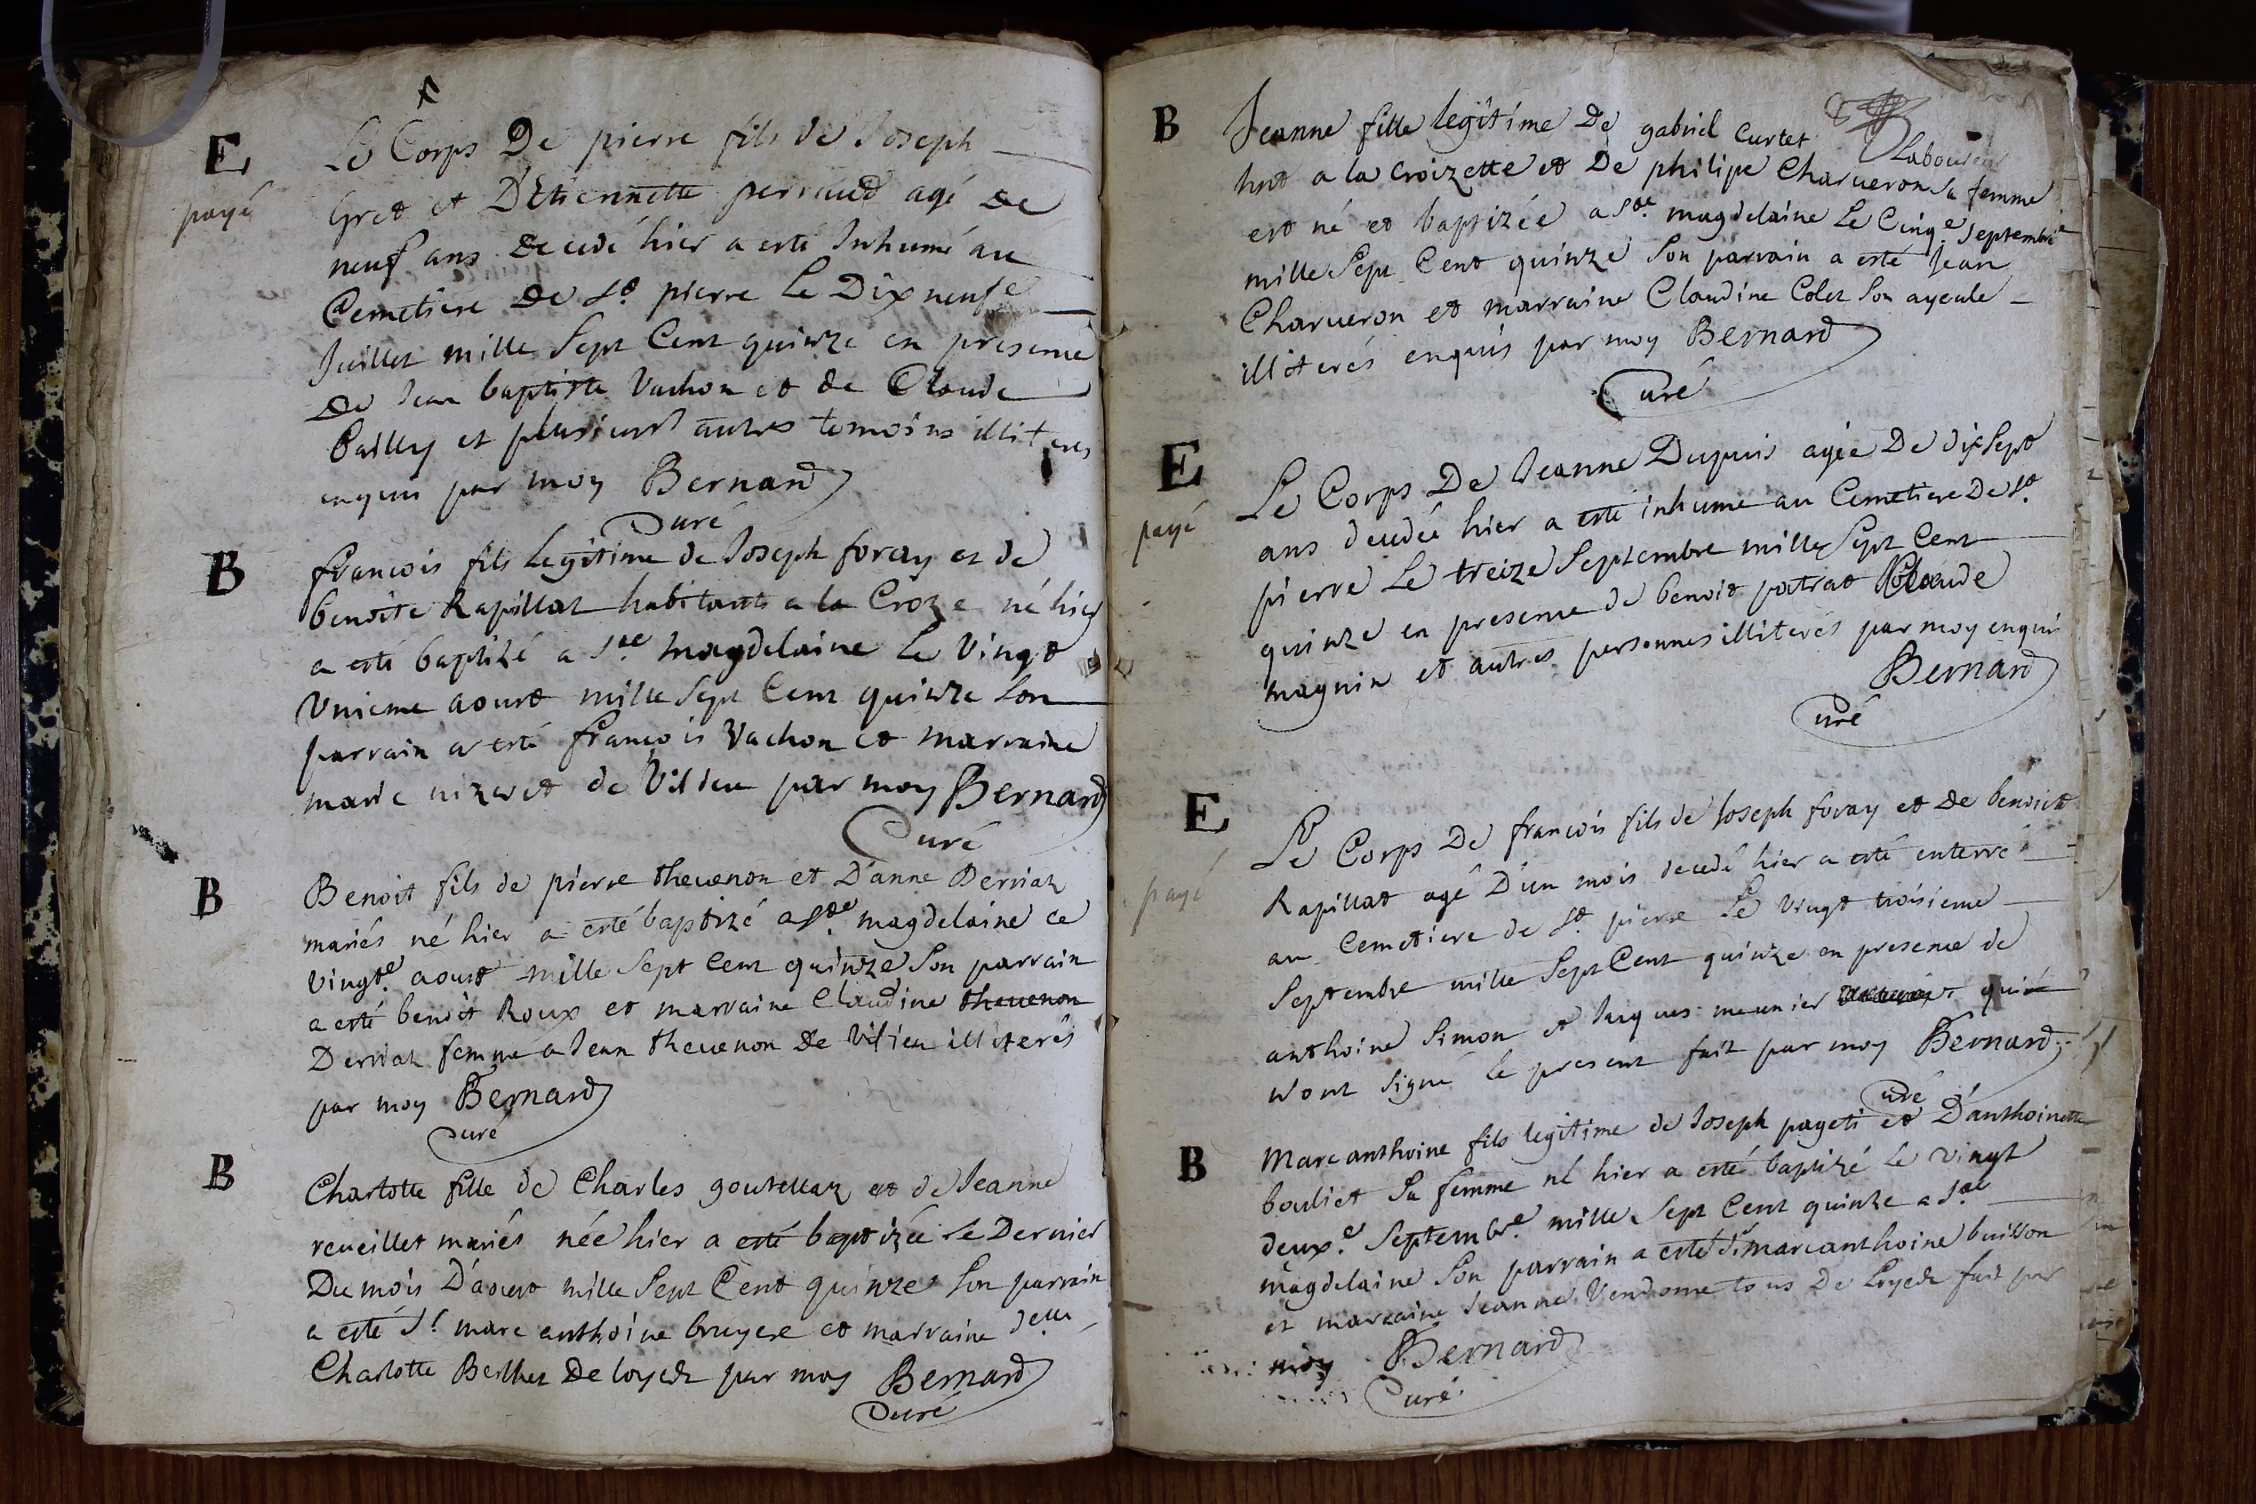 E
payé
Le Corps De pierre fils de Joseph
Gret et D'Etiennette perraud agé de
neuf ans decedé hier a esté Inhumé au
Cemetiere de St. pierre Le Dix neufe
Juillet mille Sept Cent quinze en presence
de Jean baptiste Vachon et de Claude
bailly et plusieurs autres temoins illiteres
enquis par moy Bernard
Curé
B
francois fils legitime de Joseph foray et de
benoite Rapillat habitants a la Croze né hier
a esté baptizé a Ste magdelaine le Vingt
Unieme aoust mille Sept Cent quinze son
parrain a esté francois Vachon et marraine
marie nizeret de Vilieu par moy Bernard
Curé
B
Benoit fils de pierre thevenon et D'anne Derriaz
mariés né hier a esté baptizé a Ste. magdelaine ce
Vingt.e aoust mille Sept Cent quinze Son parrain
a esté benoit Roux et marraine Claudine thevenon
Derriaz femme a Jean thevenon de Vilieu illiterés
par moy Bernard
Curé
B
Charlotte fille de Charles goutellaz et de Jeanne
reveillet mariés née hier a esté baptizée le Dernier
Du mois D'aoust mille Sept Cent quinze Son parrain
a esté Sr. marc anthoine bruyere et marraine delle
Charlotte Berlhet De loyete par moy Bernard
Curé
B
Jeanne fille legitime De gabriel Curtet Laboureur
hnt a la Croizette et De philipe Charveron Sa femme
est né et baptizée a Ste. magdelaine Le Cinq.e Septembre
mille Sept Cent quinze Son parrain a esté Jean
Charveron et marraine Claudine Colet Son ayeule
illiterés enquis par moy Bernard
Curé
E
payé
Le Corps De Jeanne Dupuis agée De dixSept
ans decedée hier a esté inhume au Cemetiere De St.
pierre Le treize Septembre mille Sept Cent
quinze en presence de benoit patrat Claude
magnin et autres personnes illiterés par moy enquis
Bernard
Curé
E
payé
Le Corps De francois fils de Joseph foray et de benoite
Rapillat agé D'un mois decedé hier a esté enterré
au Cemetiere de St. pierre Le Vingt troisieme
Septembre mille Sept Cent quinze en presence de
anthoine Simon et Jaques meunier qui
n'ont signé le present fait par moy Bernard
Curé
B
Marcanthoine fils legitime de Joseph pageti et D'anthoinette
bouliet Sa femme né hier a esté baptizé le vingt
deux.e Septembr.e mille Sept Cent quinze a Ste
magdelaine Son parrain a esté Sr marcanthoine buisson
et marraine Jeanne Vendome tous De Loyete fait par
moy Bernard
Curé